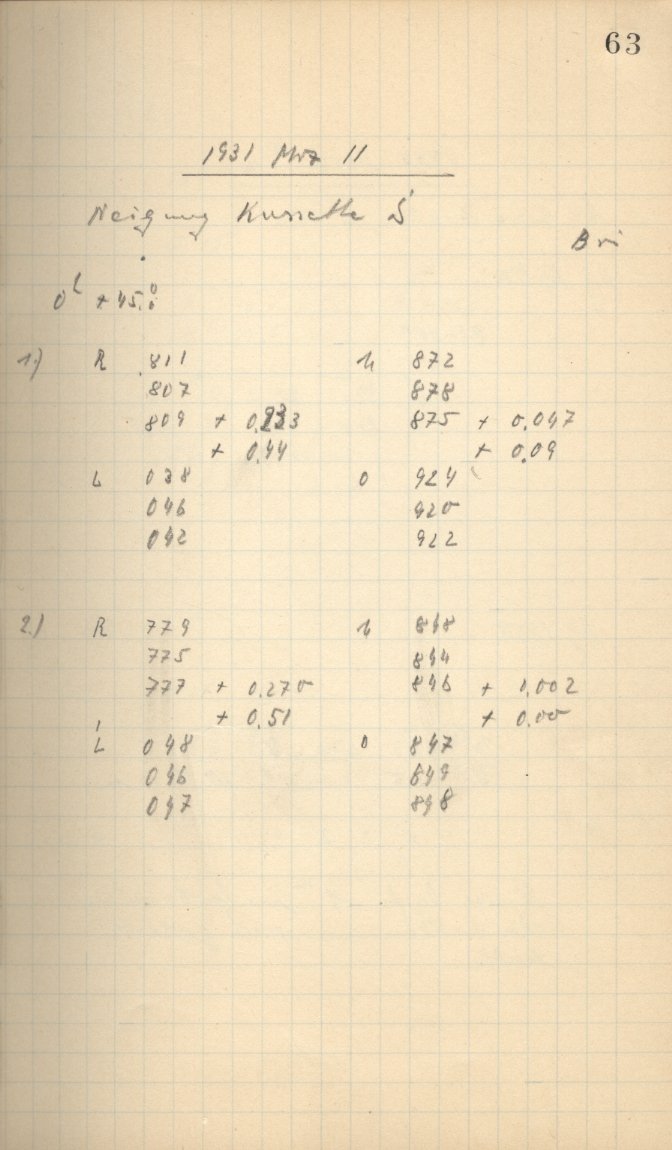 63
1931 Mrz 11
Neigung Kassette S
Bri
0h + 45.0
1.) R 811 U 872
807 878
809 + 0.233 875 + 0.047
+ 0.44 + 0.09
L 038 O 924
046 920
042 922
2.) R 779 U 848
775 844
777 + 0.270 846 + 0.002
+ 0.51 + 0.00
L 048 O 847
046 849
047 848